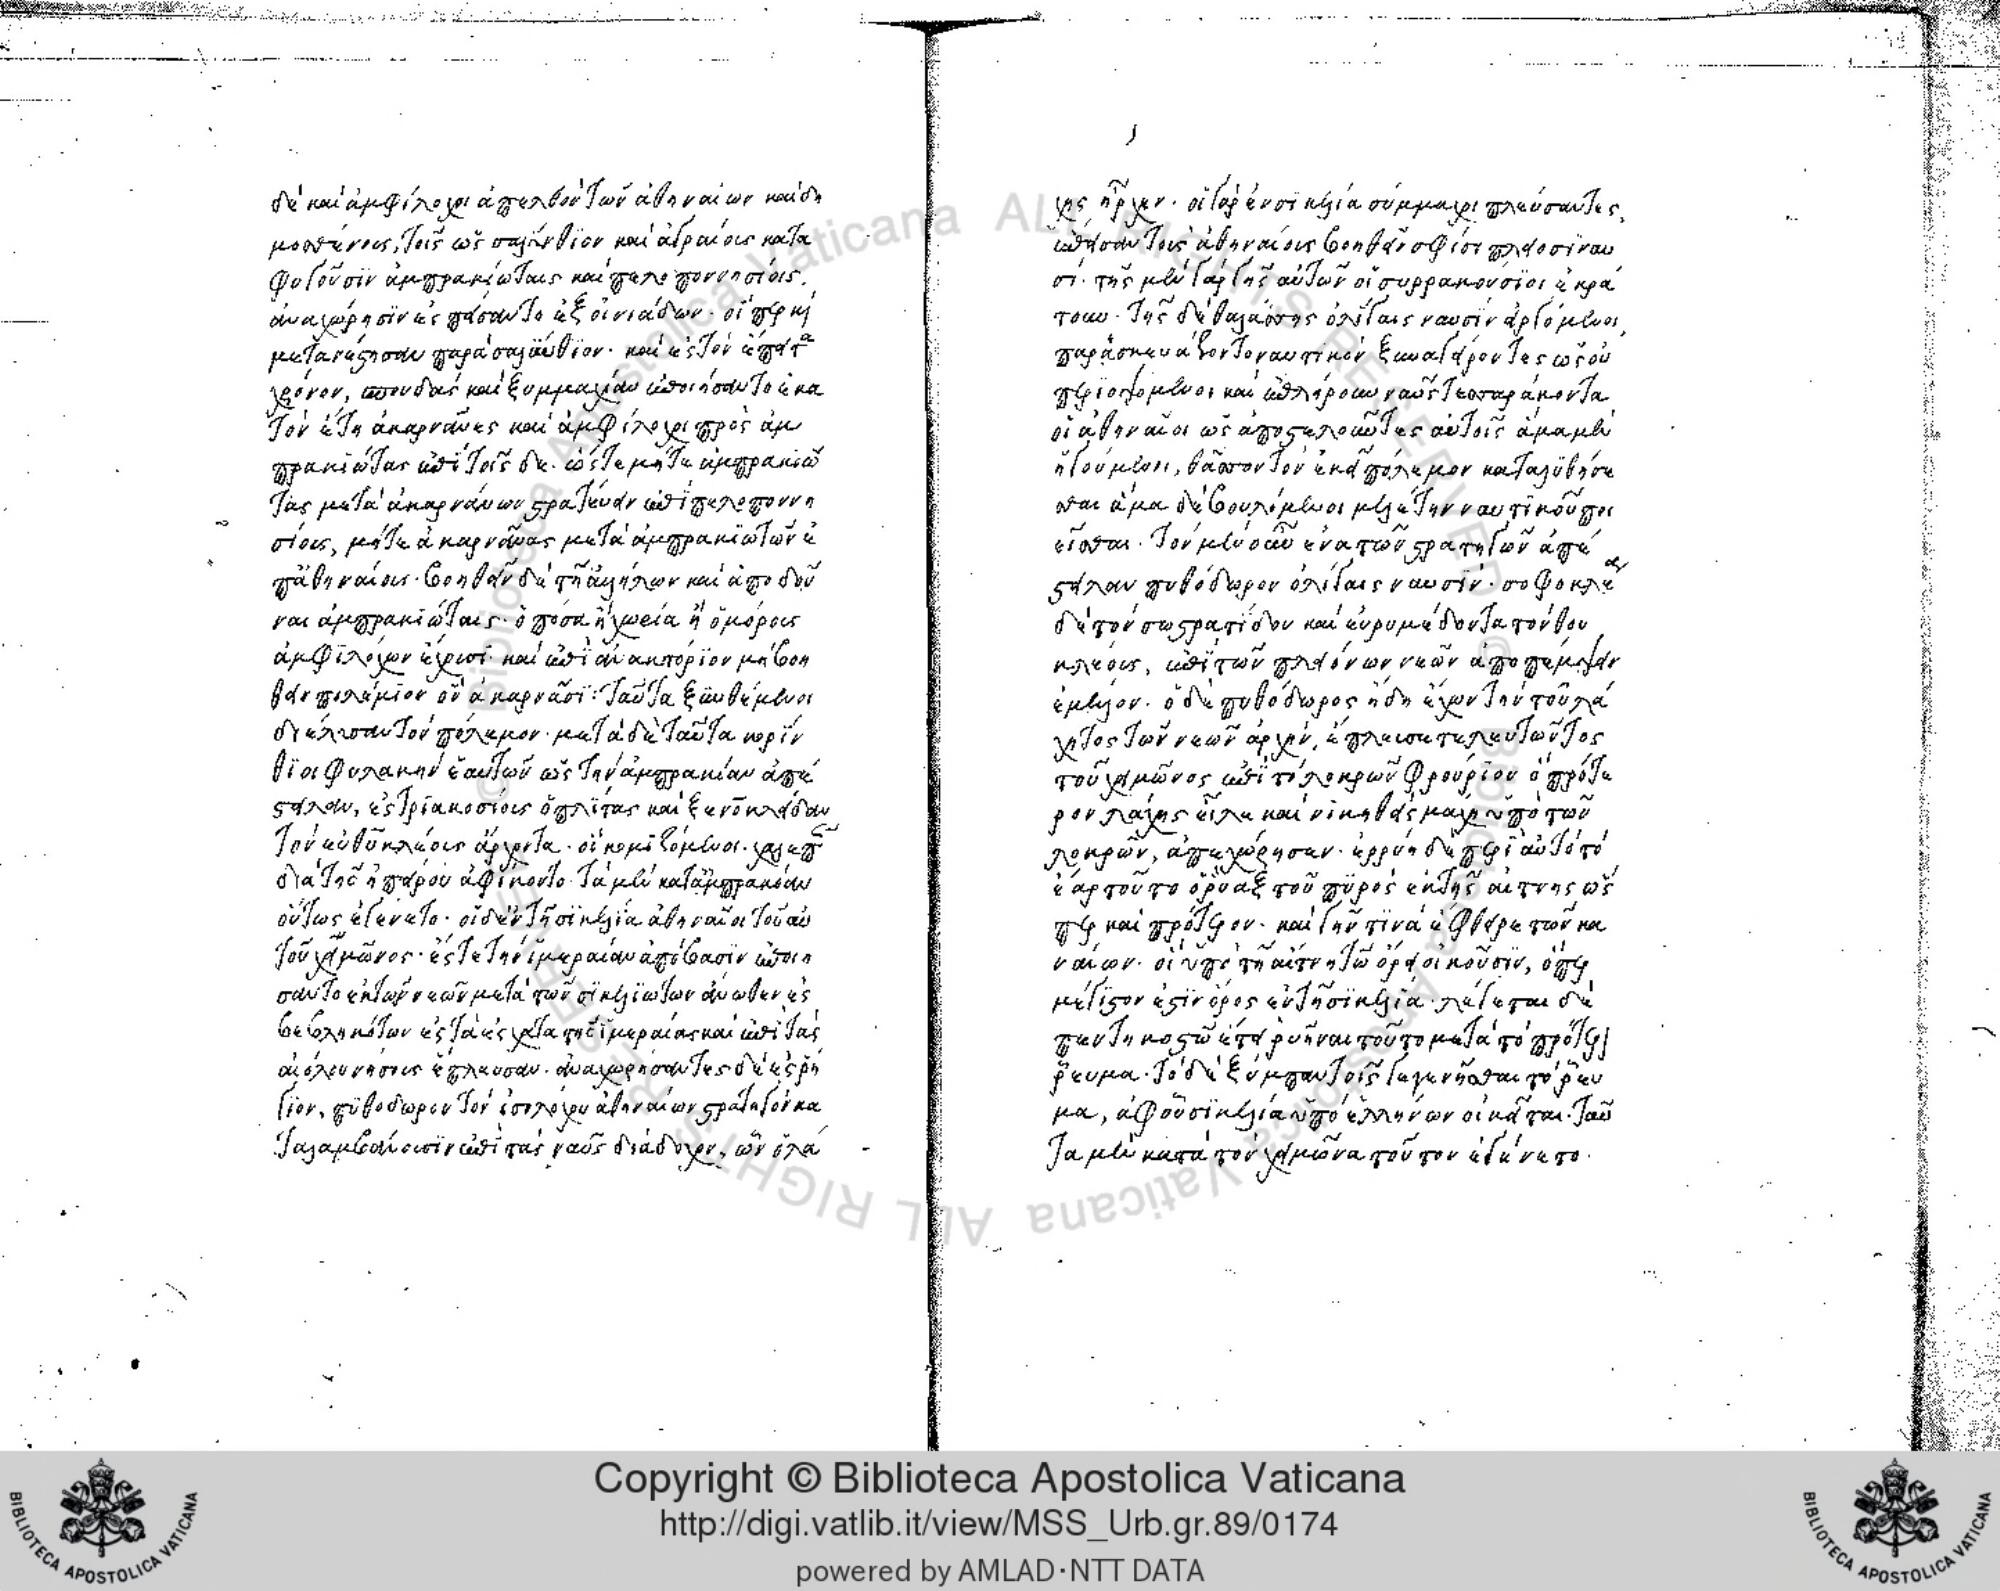 δὲ καὶ ἀμφίλοχοι ἀπελθόντων ἀθηναίων καὶ δη
μοσθένους, τοῖς ὡς σαλύνθιον καὶ ἀγραίους κατα
φυγοῦσιν ἀμπρακιώταις καὶ πελοποννησίοις,
ἀναχώρησιν ἐσπείσαντο ἐξ οἰνιάδων· οἵπερ καὶ
μετανέστησαν παρὰ σαλύνθιον· καὶ ἐς τὸν ἔπειτα
χρόνον, σπονδὰς καὶ ξυμμαχίαν ἐποιήσαντο ἑκα
τὸν ἔτη ἀκαρνᾶνες καὶ ἀμφίλοχοι πρὸς ἀμ
πρακιώτας ἐπὶ τοῖς δε· ὥστε μήτε ἀμπρακιώ
τας μετὰ ἀκαρνάνων στρατεύειν ἐπὶ πελοποννη
σίους, μήτε ἀκαρνᾶνας μετὰ ἀμπρακιωτῶν ἐ
π ἀθηναίους· βοηθεῖν δὲ τῇ ἀλλήλων καὶ ἀποδοῦ
ναι ἀμπρακιώταις· ὁπόσα ἢ χωρία ἢ ὁμόρους
ἀμφιλόχων ἔχουσι· καὶ ἐπὶ ἀνακτόριον μὴ βοη
θεῖν πολέμιον ὂν ἀκαρνᾶσι: ταῦτα ξυνθέμενοι
διέλυσαν τὸν πόλεμον· μετὰ δὲ ταῦτα κορίν
θιοι φυλακὴν ἑαυτῶν ὡς τὴν ἀμπρακίαν ἀπέ
στειλαν, ἐς τριακοσίους ὁπλίτας καὶ ξενοκλείδαν
τὸν εὐθυκλέους ἄρχοντα· οἱ κομιζόμενοι χαλεπῶς
διὰ τῆς ἠπείρου ἀφίκοντο· τὰ μὲν κατ ἀμπρακίαν
οὕτως ἐγένετο· οἱ δ ἐν τῇ σικελία ἀθηναῖοι τοῦ αὐ
τοῦ χειμῶνος· ἔς τε τὴν ἱμεραίαν ἀπόβασιν ἐποιή
σαντο ἐκ τῶν νεῶν μετὰ τῶν σικελιωτῶν ἄνωθεν ἐς
βεβληκότων ἐς τὰ ἔσχατα τῆς ἱμεραίας καὶ ἐπὶ τὰς
αἰόλου νήσους ἔπλευσαν· ἀναχωρήσαντες δὲ ἐς ῥή
γιον, πυθόδωρον τὸν ἰσολόχου ἀθηναίων στρατηγὸν κα
ταλαμβάνουσιν ἐπὶ τὰς ναῦς διάδοχον, ὧν ὁ λά
χης ἦρχεν· οἱ γὰρ ἐν σικελία σύμμαχοι πλεύσαντες,
ἔπεισαν τοὺς ἀθηναίους βοηθεῖν σφίσι πλείοσι ναυ
σί· τῆς μὲν γὰρ γῆς αὐτῶν οἱ συρρακούσιοι ἐκρά
τουν· τῆς δὲ θαλάσσης ὀλίγαις ναυσὶν εἰργόμενοι,
παρεσκευάζοντο ναυτικὸν ξυναγείροντες ὡς οὐ
περιοψόμενοι καὶ ἐπλήρουν ναῦς τεσσαράκοντα
οἱ ἀθηναῖοι ὡς ἀποστελοῦντες αὐτοῖς ἅμα μὲν
ἡγούμενοι, θᾶσσον τὸν ἐκεῖ πόλεμον καταλυθήσε
σθαι ἅμα δὲ βουλόμενοι μελέτην ναυτικοῦ ποι
εῖσθαι· τὸν μὲν οὖν ἕνα τῶν στρατηγῶν ἀπέ
στειλαν πυθόδωρον ὀλίγαις ναυσίν· σοφοκλέα
δὲ τὸν σωστρατίδου καὶ εὐρυμέδοντα τὸν θου
κλέους, ἐπὶ τῶν πλειόνων νεῶν ἀποπέμψειν
ἔμελλον· ὁ δὲ πυθόδωρος ἤδη ἔχων τὴν τοῦ λά
χητος τῶν νεῶν ἀρχὴν, ἔπλευσε τελευτῶντος
τοῦ χειμῶνος ἐπὶ τὸ λοκρῶν φρούριον ὃ πρότε
ρον λάχης εἷλε καὶ νικηθεὶς μάχῃ ὑπὸ τῶν
λοκρῶν, ἀπεχώρησεν· ἐρρύη δὲ περὶ αὐτὸ τὸ
ἔαρ τοῦτο ὁ ῥύαξ τοῦ πυρὸς ἐκ τῆς αἴτνης ὥσ
περ καὶ πρότερον· καὶ γῆν τινὰ ἔφθειρε τῶν κα
ναίων· οἳ ὑπὸ τῇ αἴτνῃ τῷ ὄρει οἰκοῦσιν, ὅπερ
μέγιστον ἐστὶν ὄρος ἐν τῇ σικελία· λέγεται δὲ
πεντηκοστῷ ἔτει ῥυῆναι τοῦτο μετὰ τὸ πρότερον
ῥεῦμα· τὸ δὲ ξύμπαν τρὶς γεγενῆσθαι τὸ ῥεῦ
μα, ἀφ οὗ σικελία ὑπὸ ἑλλήνων οἰκεῖται· ταῦ
τα μὲν κατὰ τὸν χειμῶνα τοῦτον ἐγένετο·
Copyright © Biblioteca Apostolica Vaticana
http://digi.vatlib.it/view/MSS_Urb.gr.89/0174
powered by AMLAD·NTT DATA